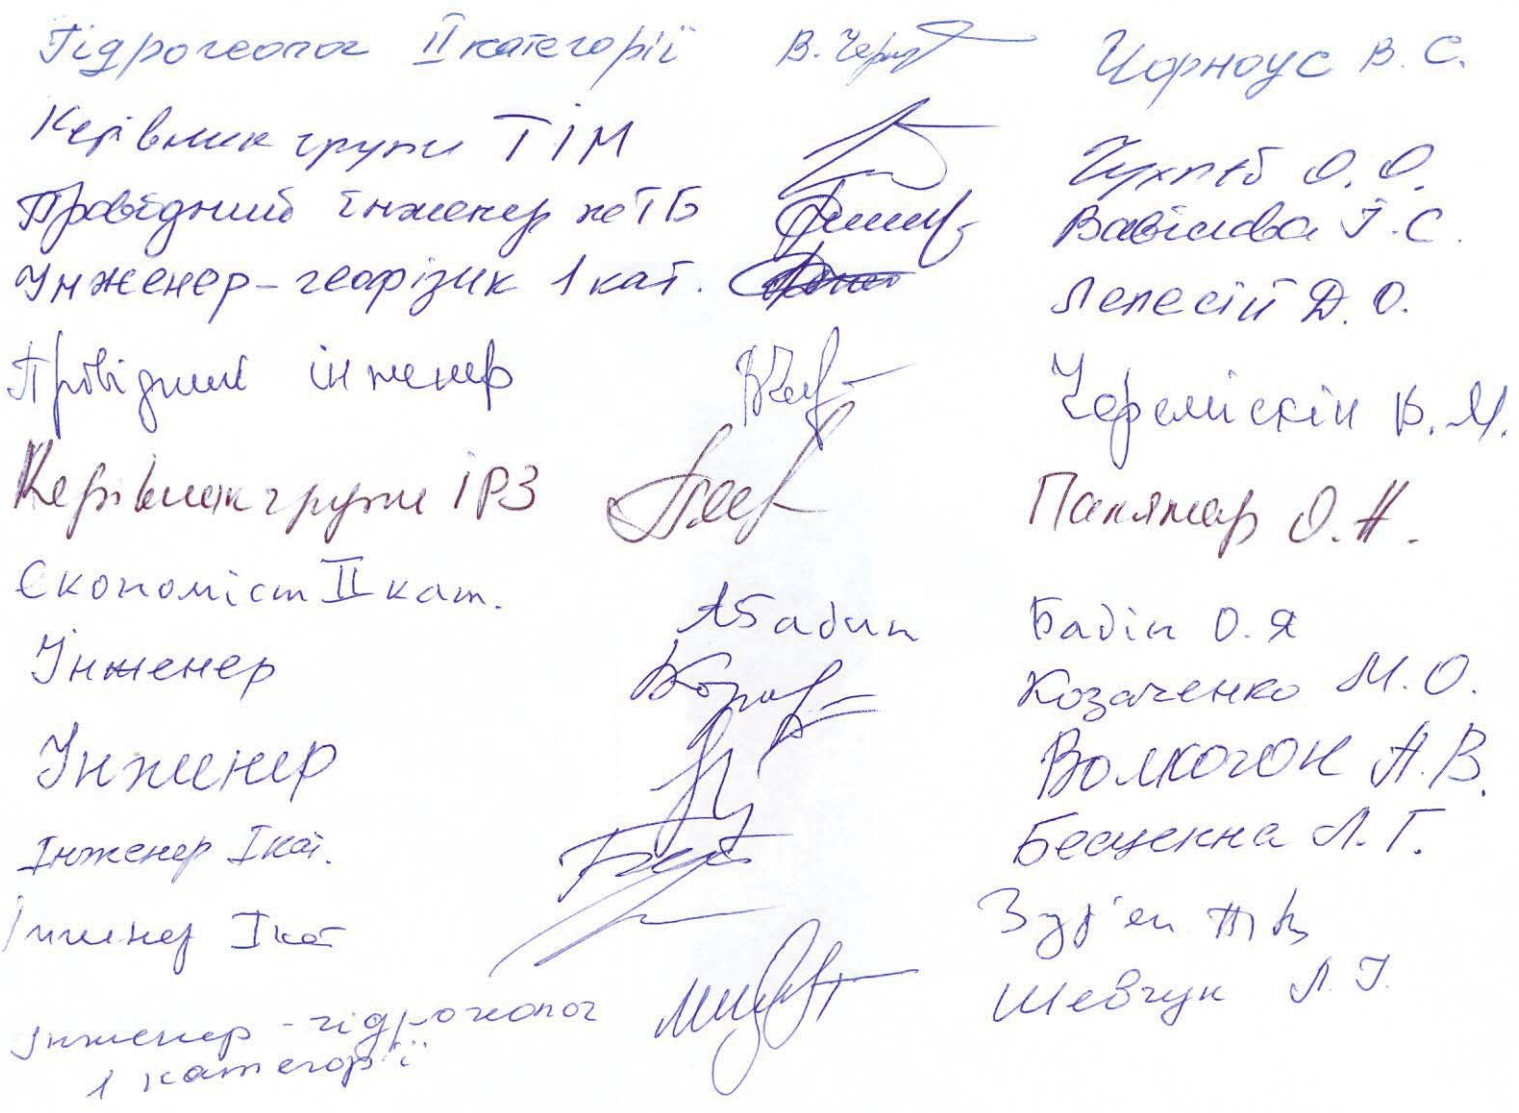 Гідрогеолог II категорії В. Чер Чорноус В. С.
Керівник групи ТІМ О. О.
Провідний інженер по ТБ Вавілова І. С.
Інженер-геофізик 1 кат. Лепесій Д. О.
Провідний інженер Черемісін В. М.
Керівник групи ІРЗ О. Н.
Економіст II кат. Бадін О. Я
Інженер Козаченко М. О.
Інженер Волкогон А. В.
Інженер I кат. Бесценна Л. Г.
Інженер I кат
Інженер-гідрогеолог Шевчук Л. І.
1 категорії